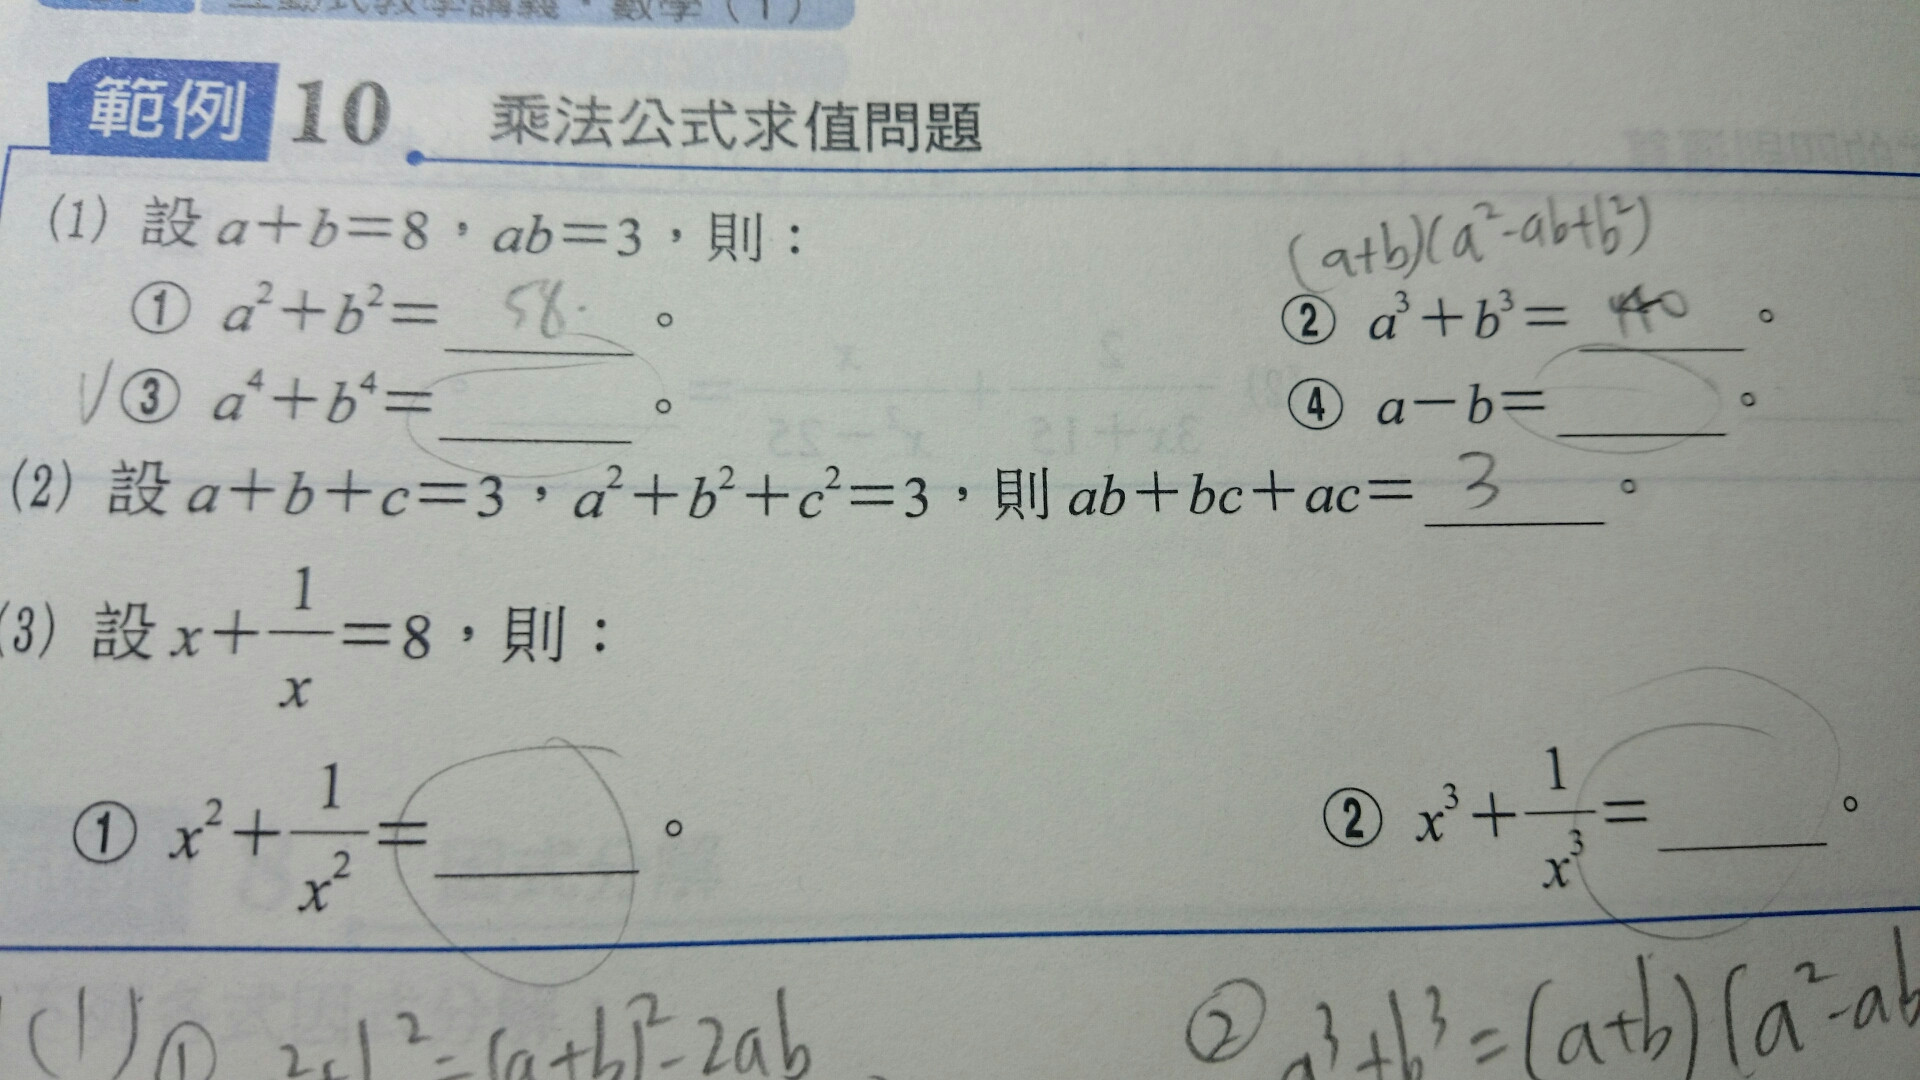 互動式教學講義．數學（1）
範例 10 乘法公式求值問題
(1) 設 a+b=8，ab=3，則：
(a+b)(a²-ab+b²)
① a²+b²= 58 。 ② a³+b³= 440 。
√③ a⁴+b⁴=______。 ④ a-b=______。
(2) 設 a+b+c=3，a²+b²+c²=3，則 ab+bc+ac= 3 。
(3) 設 x+1/x=8，則：
① x²+1/x²=______。 ② x³+1/x³=______。
(1) ① ²=(a+b)²-2ab ② a³+b³=(a+b)(a²-ab